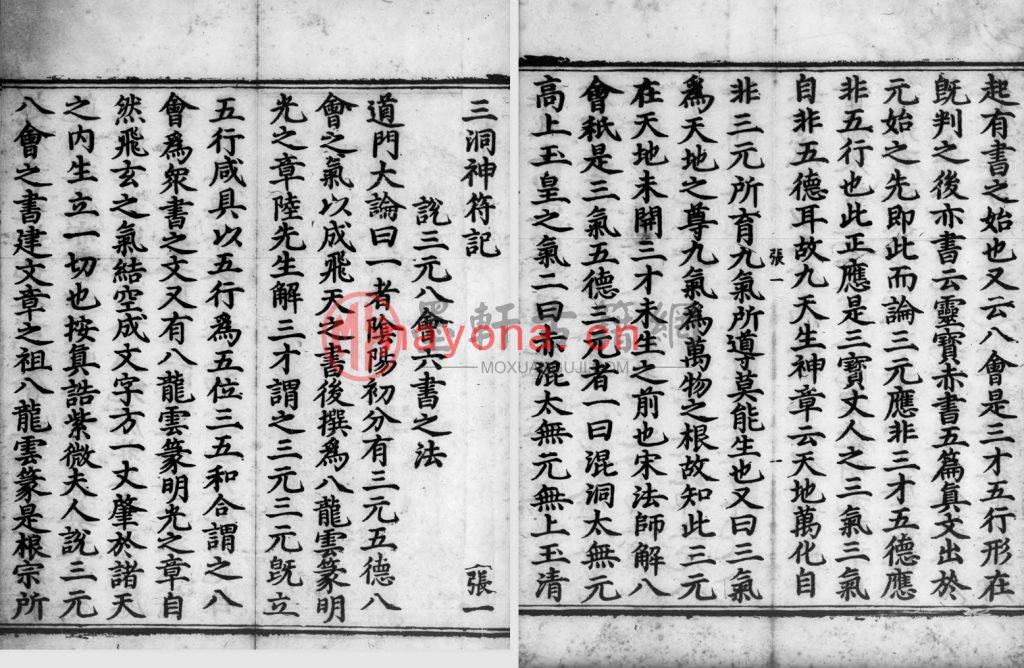 三洞神符記
張一
說三元八會六書之法
道門大論曰一者陰陽初分有三元五德八
會之氣以成飛天之書後撰爲八龍雲篆明
光之章陸先生解三才謂之三元三元旣立
五行咸具以五行爲五位三五和合謂之八
會爲衆書之文又有八龍雲篆明光之章自
然飛玄之氣結空成文字方一丈肇於諸天
之內生立一切也按真誥紫微夫人說三元
八會之書建文章之祖八龍雲篆是根宗所
起有書之始也又云八會是三才五行形在
旣判之後亦書云靈寶赤書五篇真文出於
元始之先即此而論三元應非三才五德應
非五行也此正應是三寶丈人之三氣三氣
自非五德耳故九天生神章云天地萬化自
張一
一
非三元所育九氣所導莫能生也又曰三氣
爲天地之尊九氣爲萬物之根故知此三元
在天地未開三才未生之前也宋法師解八
會秖是三氣五德三元者一曰混洞太無元
高上玉皇之氣二曰赤混太無元無上玉清
墨軒古籍網
mayona.cn
MOXUANGUJI.COM